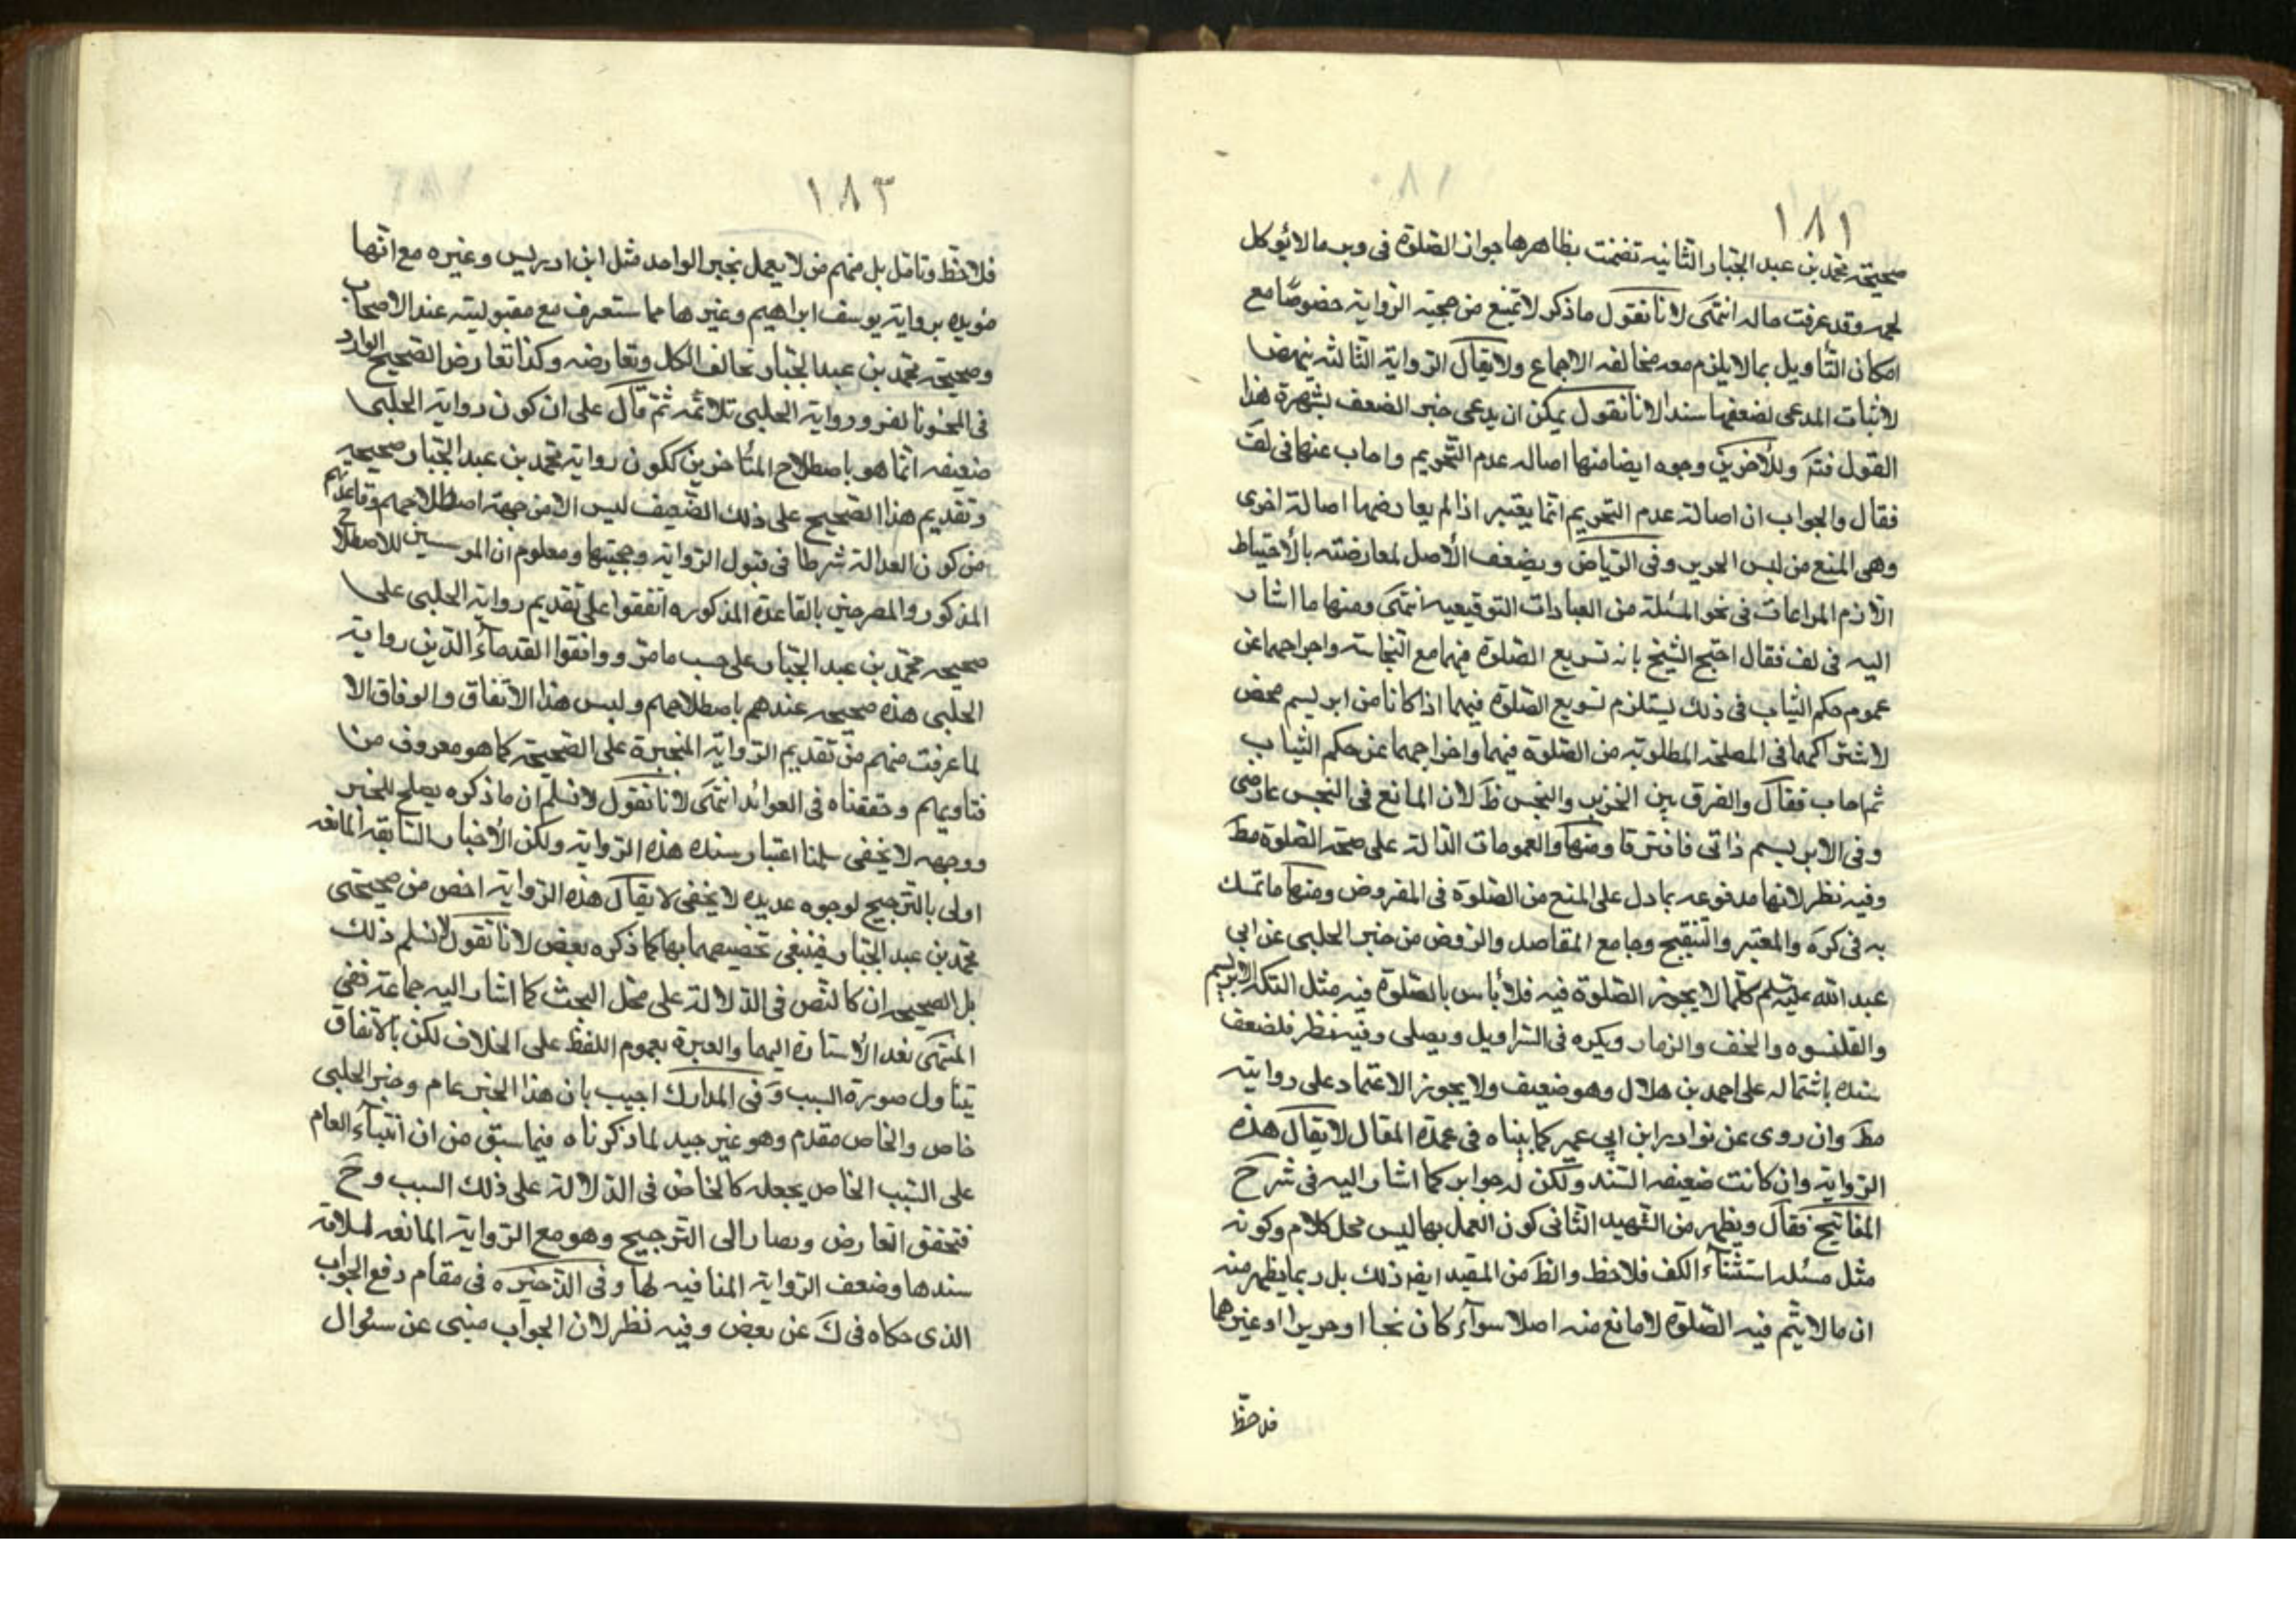 ١٨١
صحيحة محمد بن عبد الجبار الثانيه تضمنت بظاهرها جواز الصّلوة فى وبر ما لا يؤكل
لحمه وقد عرفت حاله انتهى لانا نقول ما ذكر لا تمنع من حجية الرواية خصوصًا مع
امكان التأويل بما لا يلزم معه مخالفه الاجماع ولا يقال الرواية الثالثه ينهض
لاثبات المدعى لضعفها سندا لانا نقول يمكن ان يدعى جبر الضعف بشهرة هذا
القول فتدَ وللأخرين وجوه ايضا منها اصاله عدم التحريم واجاب عنها فى لف
فقال والجواب ان اصالة عدم التحريم انما يعتبر اذا لم يعارضها اصالة اخرى
وهى المنع من لبس الحرير وفى الرياض ويضعف الأصل لمعارضته بالأحتياط
الازم المراعات فى نحو المسئلة من العبادات التوقيعيه انتهى ومنها ما اشار
اليه فى لف فقال احتج الشيخ بانه تسويع الصلوة فيهما مع النجاسة واخراجهما عن
عموم حكم الثياب فى ذلك يستلزم تسويع الصّلوة فيهما اذا كانا من ابريسم محض
لاشتراكهما فى المصلحة المطلوبة من الصّلوة فيهما واخراجهما عن حكم الثياب
ثم اجاب فقال والفرق بين الحرير والنجس ظَ لان المانع فى النجس عارضى
وفى الابريسم ذاتى فافترقا ومنها والعمومات الدالة على صحة الصّلوة مط
وفيه نظر لانها مدفوعه بما دل على المنع من الصّلوة فى المفروض ومنها ما تمسك
به فى كره والمعتبر والتنقيح وجامع المقاصد والروض من خبر الحلبى عن ابى
عبد الله عليه السلم كلما لا يجوز الصّلوة فيه فلا بأس بالصّلوة فيه مثل التكه الابريسم
والقلنسوه والخف والزنار ويكره فى السّراويل ويصلى وفيه نظر فلضعف
سنده باشتماله على احمد بن هلال وهو ضعيف ولا يجوز الاعتماد على روايته
مطَ وان روى عن نوادر ابن ابى عمير كما بيناه فى عمدة المقال لا يقال هذه
الرواية وان كانت ضعيفه السّند ولكن له جوابر كما اشار اليه فى شرح
المفاتيح فقال ويظهر من الشهيد الثانى كون العمل بها ليس محل كلام وكونه
مثل مسئلة استثناء الكف فلاحظ والظَ من المقيد ايضا ذلك بل ربما يظهر منه
ان ما لا يتم فيه الصّلوة لا مانع منه اصلا سواء كان نجسا او حريرا او غيرهما
فلاحظ
١٨٣
فلاحظ وتامل بل منهم من لا يعمل بخبر الواحد مثل ابن ادريس وغيره مع انّها
مؤيده برواية يوسف ابراهيم وغيرها مما ستعرف مع مقبوليته عند الاصحاب
وصحيحة محمد بن عبد الجبار تخالف الكل وتعارضه وكذا تعارض الصحيح الوارد
فى ورواية الحلبى تلائمه ثمّ قال على ان كون رواية الحلبى
ضعيفه انما هو باصطلاح المتأخرين ككون رواية محمد بن عبد الجبار صحيحه
وتقديم هذا الصحيح على ذلك الضّعيف ليس الا من جهة اصطلاحهم وقاعدتهم
من كون العدالة شرطا فى قبول الرواية وحجيتها ومعلوم ان المؤسسين للاصطلاح
المذكور والمصرحين بالقاعدة المذكوره اتفقوا على تقديم رواية الحلبى على
صحيحه محمد بن عبد الجبار على حسب ما مرّ ووافقوا القدماء الذين رواية
الحلبى هذه صحيحه عندهم باصطلاحهم وليس هذا الاتفاق والوفاق الا
لما عرفت منهم من تقديم الرواية المنجبرة على الصّحيحة كما هو معروف من
فتاويهم وحققناه فى العوائد انتهى لانا نقول لا نسلم ان ما ذكره يصلح للجبر
ووجهه لا يخفى سلمنا اعتبار سنده هذه الرواية ولكن الأخبار السّابقه المانعه
اولى بالترجيح لوجوه عديده لا يخفى لا يقال هذه الرواية اخص من صحيحتى
محمد بن عبد الجبار فينبغى تخصيصهما بها كما ذكره بعض لانا نقول لا نسلم ذلك
بل الصحيحان كالنّص فى الدّلالة على محل البحث كما اشار اليه جماعة ففى
المنتهى بعد الأشارة اليهما والعبرة بعموم اللفظ على الخلاف لكن بالاتفاق
يتناول صورة السبب وَفى المدارك اجيب بان هذا الخبر عام وخبر الحلبى
خاص والخاص مقدم وهو غير جيد لما ذكرناه فيما سبق من ان ابتناء العام
على السّبب الخاص يجعله كالخاص فى الدّلالة على ذلك السبب وحَ
فتحقق التعارض ويصار الى التّرجيح وهو مع الرواية المانعه لسلامة
سندها وضعف الرواية المنافيه لها وفى الذّخيره فى مقام دفع الجواب
الذى حكاه فى كَ عن بعض وفيه نظر لان الجواب مبنى عن سئوال